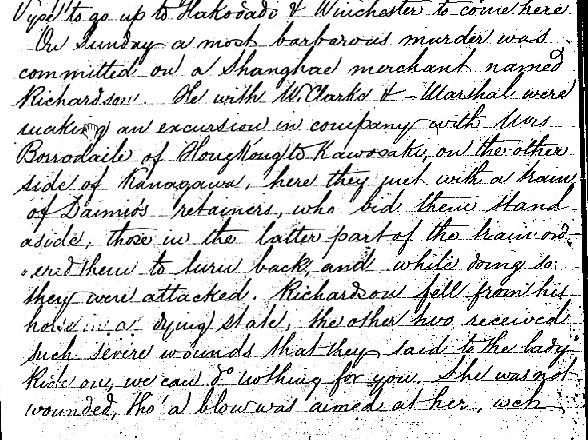 Vyse to go up to Hakodado & Winchester to come here
On Sunday a most barbarous murder was
committed on a Shanghae merchant named
Richardson. He with W. Clarke & Marshal were
making an excursion in company with Mrs
Borrodaile of HongKong to Kawosaki, on the other
side of Kanagawa, here they met with a train
of Daimio's retainers, who bid them stand
aside, those in the latter part of the train ord-
ered them to turn back, and while doing so
they were attacked. Richardson fell from his
horse in a dying state, the other two received
such severe wounds that they said to the lady
Ride on, we can do nothing for you. She was not
wounded, tho' a blow was aimed at her, wch